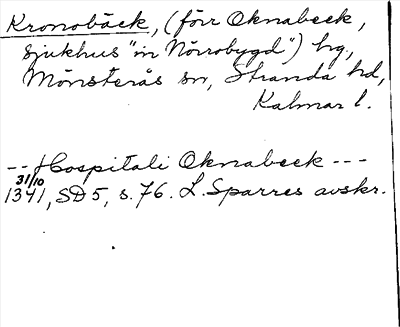 Kronobäck, (förr Oknabeck,
sjukhus "in Norrobygd") hg,
Mönsterås sn, Stranda hd,
Kalmar l.
-- Hospitali Oknabeck ---
31/10
1341, SD 5, s. 76. L. Sparres avskr.